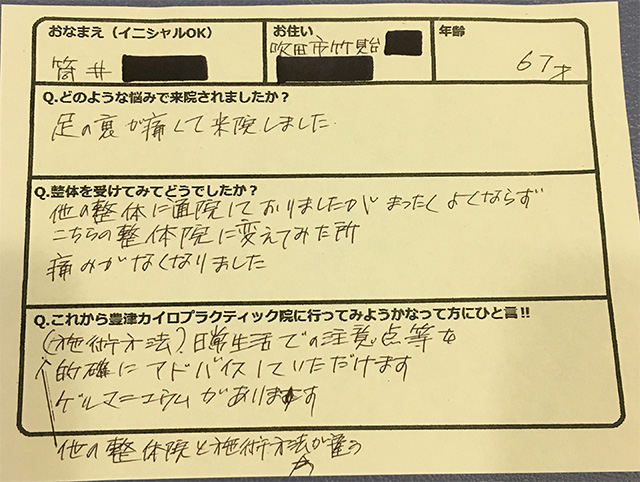 おなまえ（イニシャルOK）
筒井
お住い
吹田市竹見台
年齢
67才
Q.どのような悩みで来院されましたか？
足の裏が痛くて来院しました
Q.整体を受けてみてどうでしたか？
他の整体に通院しておりましたがまったくよくならず
こちらの整体院に変えてみた所
痛みがなくなりました
Q.これから豊津カイロプラクティック院に行ってみようかなって方にひと言!!
(施術方法)日常生活での注意点等を
的確にアドバイスしていただけます
ゲルマニュウムがあります
他の整体院と施術方法が違う